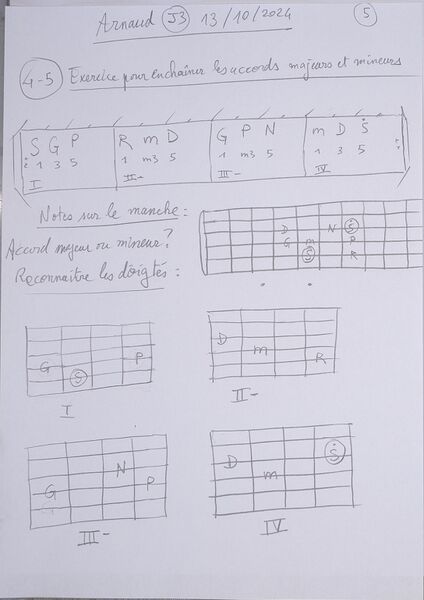 Arnaud J3 13/10/2024 5
4-5 Exercice pour enchaîner les accords majeurs et mineurs
S G P R m D G P N m D Ṡ
1 3 5 1 m3 5 1 m3 5 1 3 5
I II- III- IV
Notes sur le manche :
D N Ṡ
Accord majeur ou mineur ?
G m P
S R
Reconnaître les doigtés :
G S P
I
D m R
II-
G N P
III-
D m Ṡ
IV